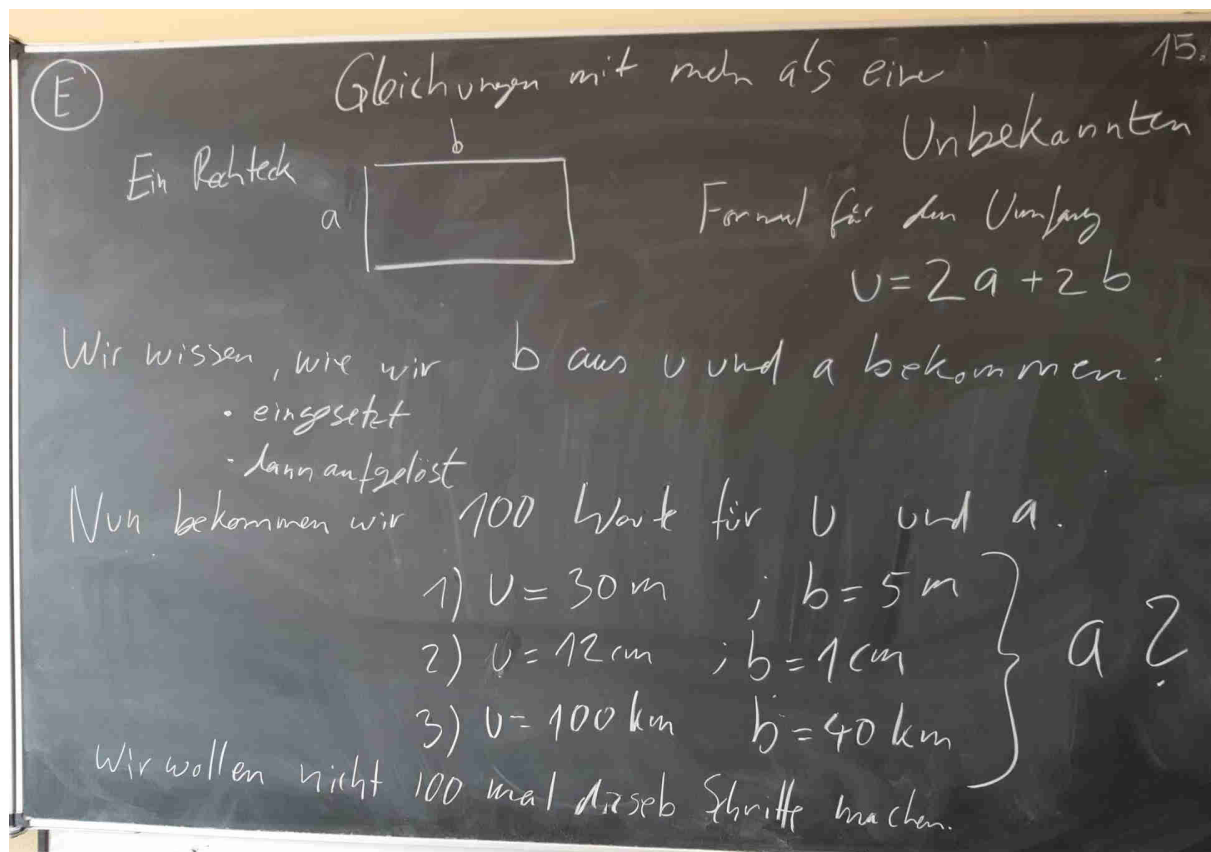 E
Gleichungen mit mehr als eine
15.
Unbekannten
b
Ein Rechteck
a
Formel für den Umfang
U = 2a + 2b
Wir wissen, wie wir b aus u und a bekommen:
• eingesetzt
• dann aufgelöst
Nun bekommen wir 100 Werte für U und a.
1) U = 30 m ; b = 5 m
2) U = 12 cm ; b = 1 cm
a?
3) U = 100 km b = 40 km
Wir wollen nicht 100 mal Schritte machen.